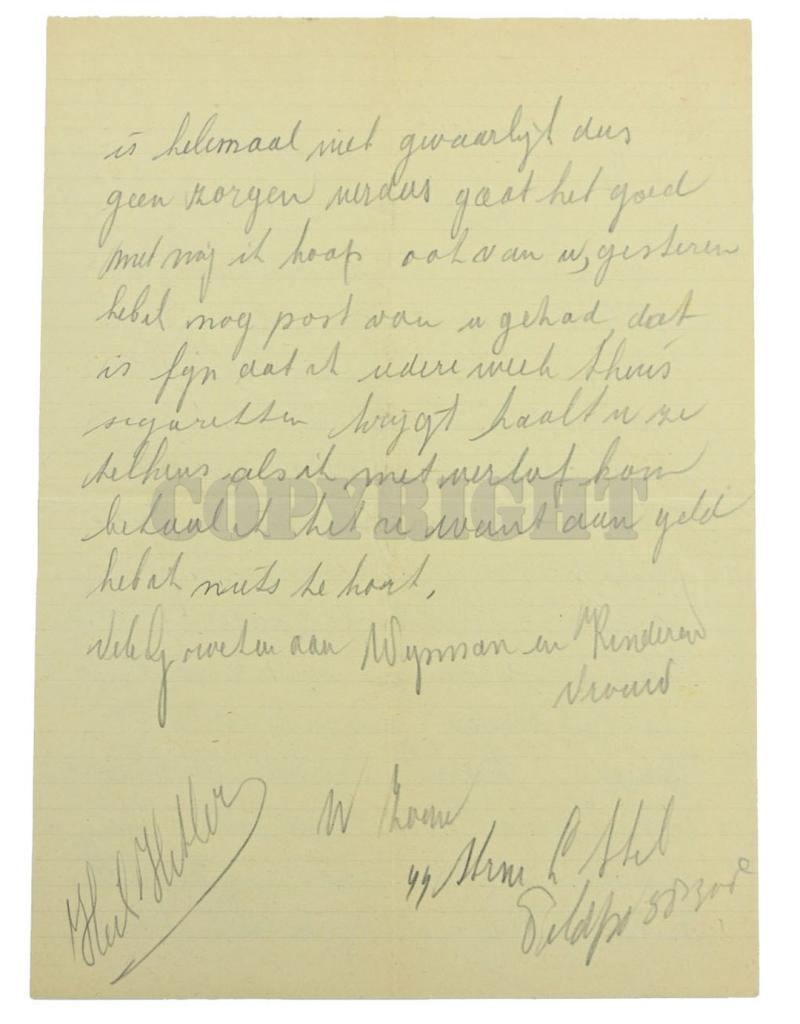 is helemaal niet gevaarlijk dus
geen zorgen verdus gaat het goed
met mij ik hoop ook van u, gisteren
heb ik nog post van u gehad, dat
is fijn dat ik iedere week thuis
sigaretten krijgt haalt u ze
telkens als ik met verlof kom
betaal ik het u want aan geld
heb ik niets te kort,
Vele Groeten aan Wynman en Kinderen
Vrouw
Heil Hitler
COPYRIGHT